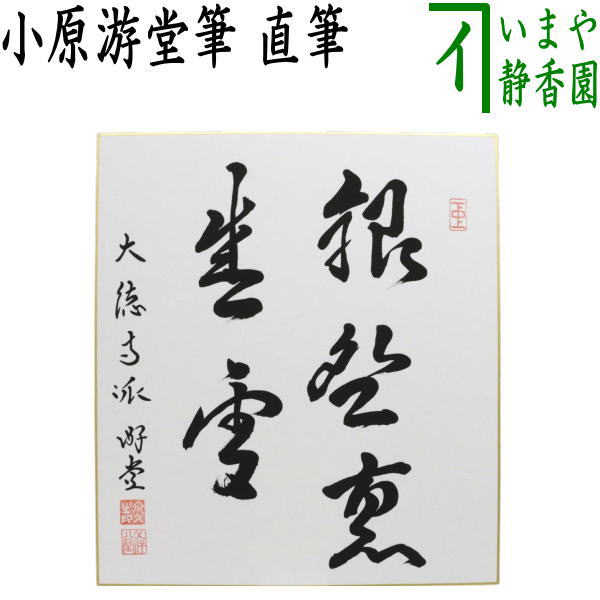 小原游堂筆 直筆
いまや
静香園
銀垩裏
盛雪
大徳寺派 游堂